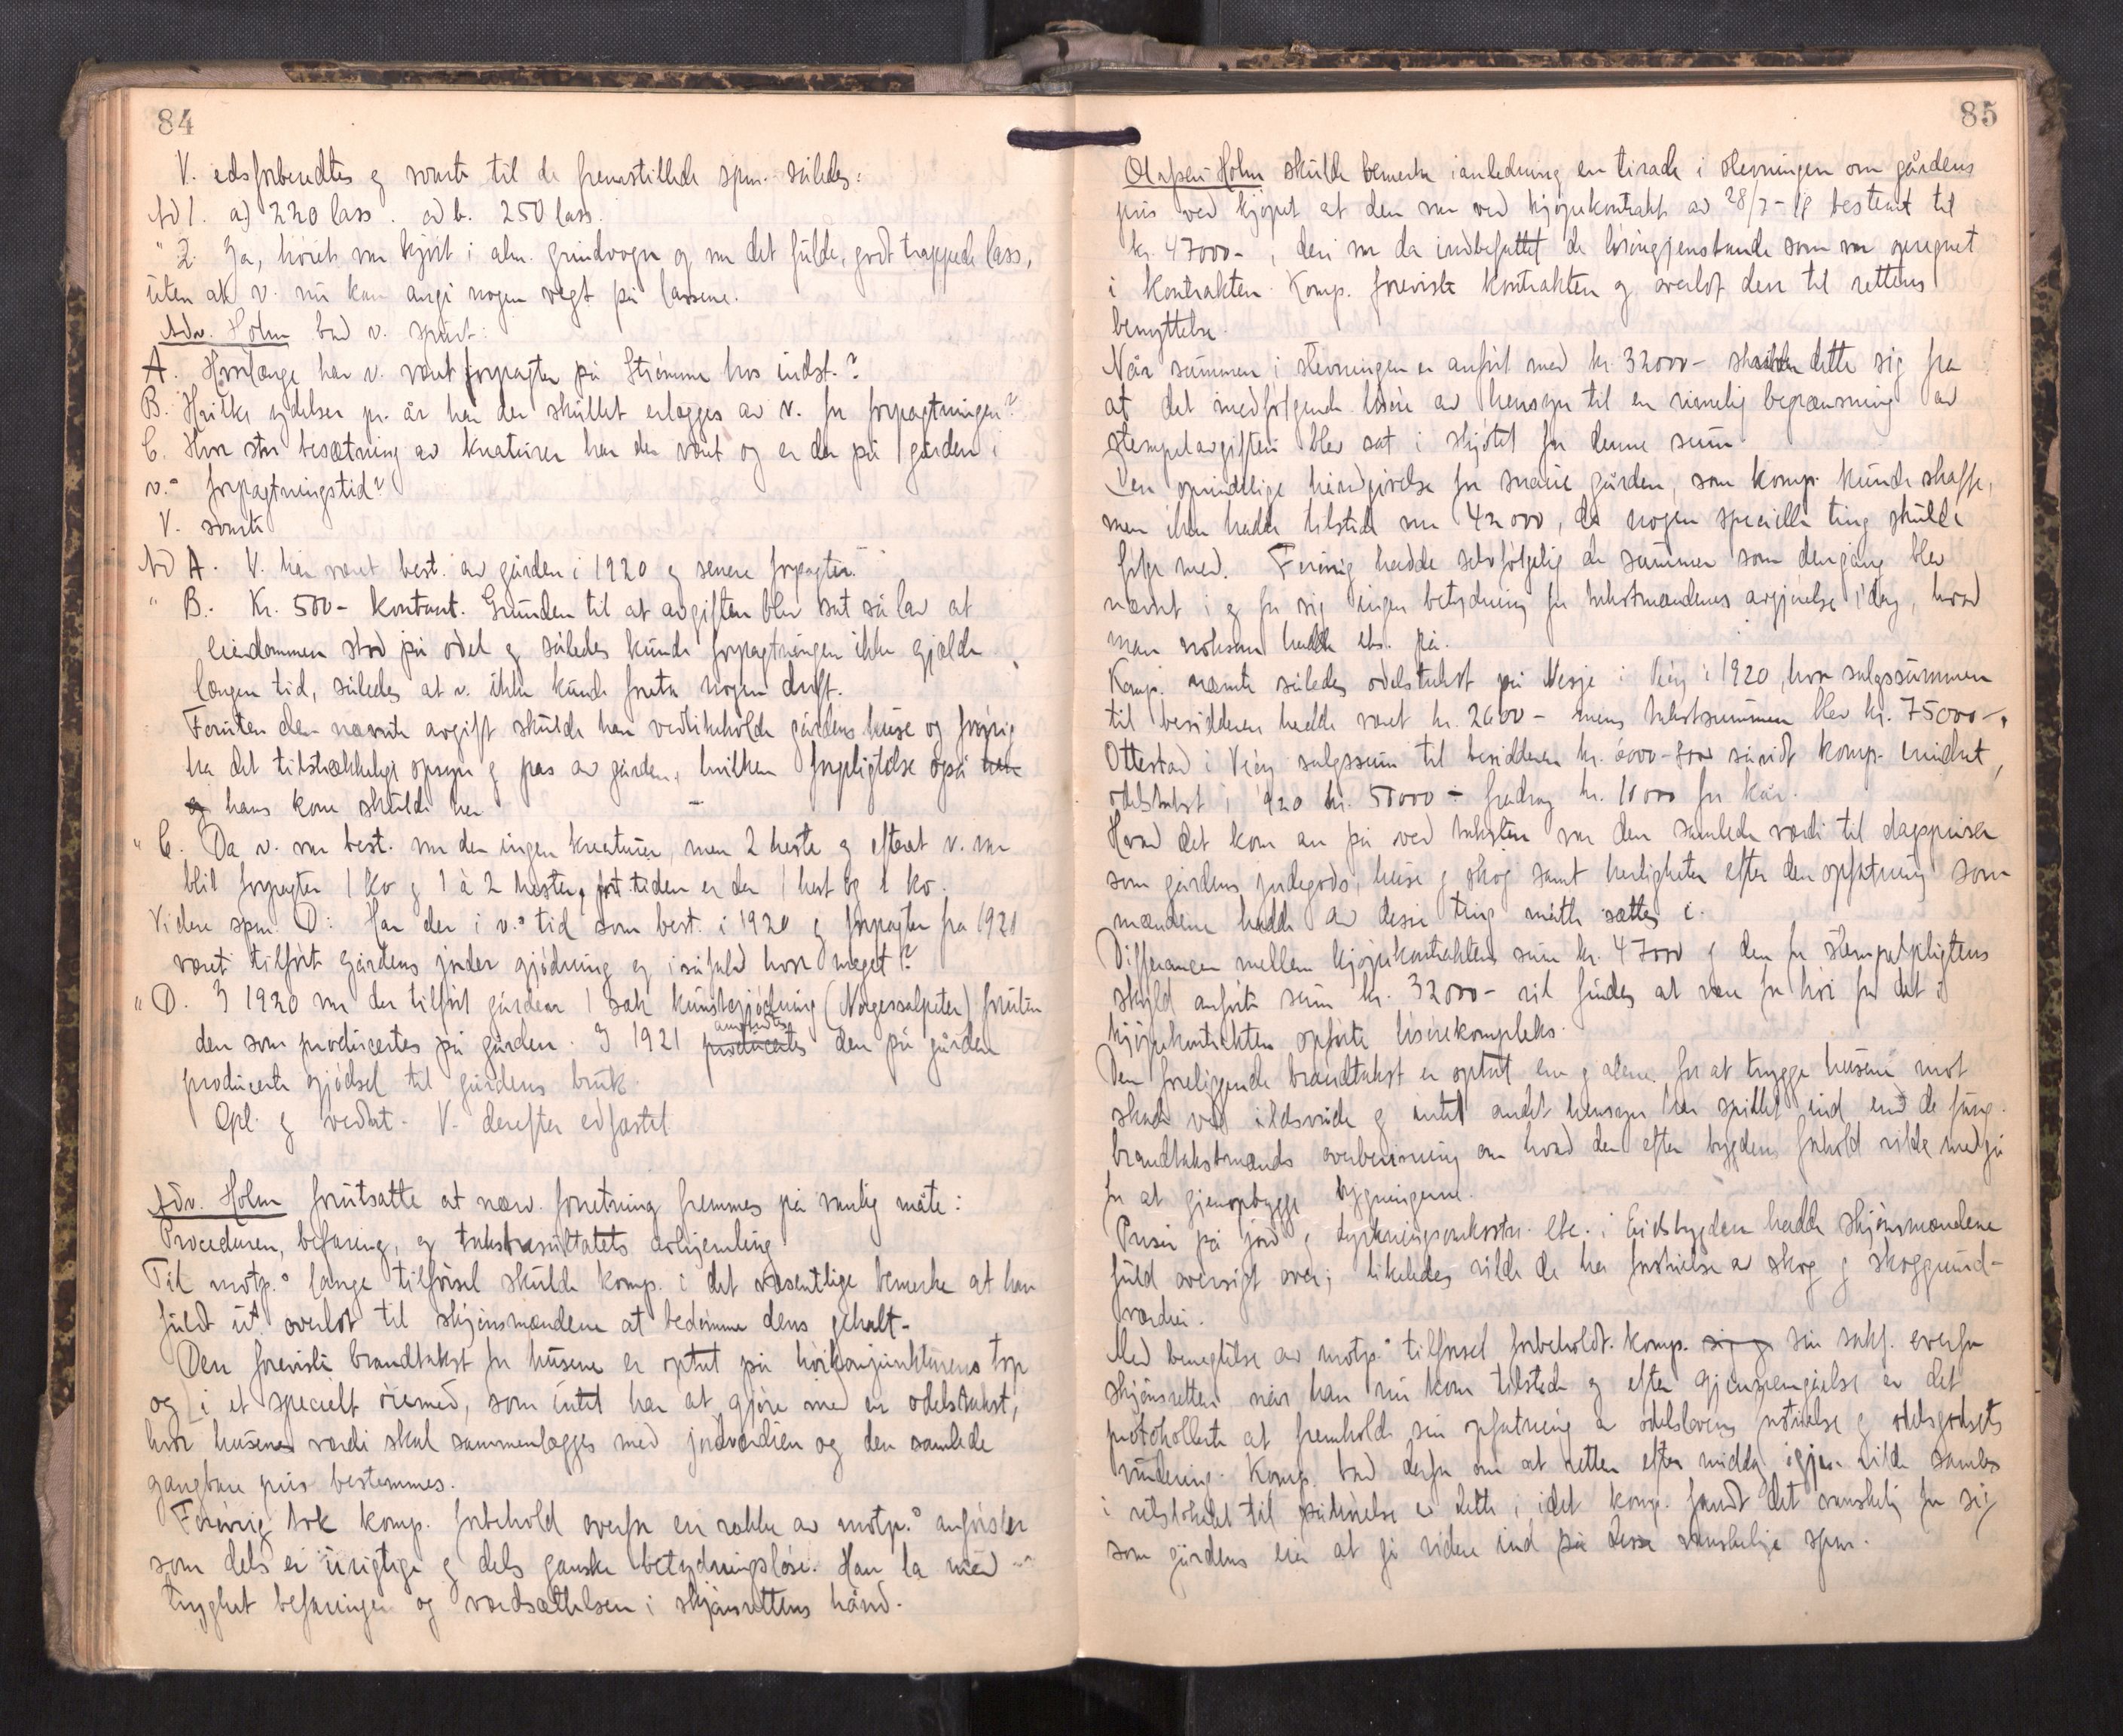 84
V. edsforberedtes og svarte til de fremstillede spm. således:
Ad 1. a) 220 lass. ad b. 250 lass.
" 2. Ja, høiet var kjørt i alm. grindvogn og var det fulde, godt trappede lass,
uten at v. nu kan angi nogen vegt på lassene.
Adv. Holm bad v. spurt:
A. Hvorlænge har v. været forpagter på Strømme hos indst.?
B. Hvilke ydelser pr. år har der skullet erlægges av v. for forpagtningen?
C. Hvor stor besætning av kreaturer har der været og er der på gården i
v.s forpagtningstid?
V. svarte
Ad A. V. har været best. av gården i 1920 og senere forpagter.
" B. Kr. 500- kontant. Grunden til at avgiften blev sat så lav at
eiendommen stod på odel og således kunde forpagtningen ikke gjælde
længere tid, således at v. ikke kunde foreta nogen drift.
Foruten den nævnte avgift skulde han vedlikeholde gårdens huse og forøvrig
ha det tilstrækkelige opsyn og pas av gården, hvilken forpligtelse også han
og hans kone skulde ha
" C. Da v. var best. var der ingen kreaturer, men 2 heste og efterat v. var
blit forpagter 1 ko og 1 à 2 hester, for tiden er der 1 hest og 1 ko.
Videre spm. D: Har der i v.s tid som best. i 1920 og forpagter fra 1921
været tilført gårdens jorder gjødning og isåfald hvor meget?
" D. I 1920 var der tilført gården 1 sæk kunstgjødning (Norgessalpeter) foruten
den som producertes på gården. I 1921 producertes anvendtes den på gården
producerte gjødsel til gårdens bruk.
Opl. og vedtat. V. derefter edfæstet
Adv. Holm forutsatte at nærv. forretning fremmes på vanlig måte:
Proceduren, befaring, og takstresultatets avhjemling
Til motp.s lange tilførsel skulde komp. i det væsentlige bemerke at han
fuldt ut overlot til skjønsmændene at bedømme dens gehalt.
Den foreviste brandtakst for husene er optat på høikonjunkturens top
og i et specielt øiemed, som intet har at gjøre med en odelstakst,
hvor husenes værdi skal sammenlægges med jordværdien og den samlede
gangbare pris bestemmes.
Forøvrig tok komp. forbehold overfor en række av motp.s anførsler
som dels er urigtige og dels ganske betydningsløse. Han la med
tryghet befaringen og værdsættelsen i skjønsrettens hånd.
85
Olafsen-Holm skulde bemerke ianledning en tirade i stevningen om gårdens
pris ved kjøpet at den var ved kjøpekontrakt av 28/7-18 bestemt til
kr. 47000-, deri var da indbefattet de løsøregjenstande som var opregnet
i kontrakten. Komp. foreviste kontrakten og overlot den til rettens
benyttelse.
Når summen i stevningen er anført med kr. 32000- skriver dette sig fra
at det medfølgende løsøre av hensyn til en rimelig begrænsning av
stempelavgiften blev sat i skjøtet for denne sum
Den oprindelige hendgivelse for snaue gården, som komp. kunde skaffe,
men ikke hadde tilstede var 42000, da nogen specielle ting skulde
følge med. Forøvrig hadde selvfølgelig de summer som dengang blev
nævnt i og for sig ingen betydning for takstmændenes avgjørelse idag, hvad
man noksom hadde eks. på.
Komp. nævnte således odelstakst på Nesje i Veøy i 1920, hvor salgssummen
til besidderen hadde været kr. 2600- mens takstsummen blev kr. 75000-.
Ottestad i Veøy salgssum til besidderen kr. 6000-8000 såvidt komp. erindret,
odelstakst i 1920 kr. 50000 - fradrag kr. 10000 for kår.
Hvad det kom an på ved taksten var den samlede værdi til dagspriser
som gårdens jordegods, huse og skog samt herligheter efter den opfatning som
mændene hadde av disse ting måtte sættes i.
Differansen mellem kjøpekontraktens sum kr. 47000 og den for stempelpligtens
skyld anførte sum kr. 32000- vil findes at være for høi for det i
kjøpekontrakten opførte løsørekompleks.
Den foreliggende brandtakst er optat ene og alene for at trygge husene mot
skade ved ildsvåde og intet andet hensyn har spillet ind end de fung.
brandtakstmænds overbevisning om hvad den efter bygdens forhold vilde medgå
for at gjenopbygge bygningerne.
Priser på jord og dyrkningsomkostn. etc. i Eidsbygden hadde skjønsmændene
fuld oversigt over; likeledes vilde de ha forståelse av skog og skoggrund-
værdier.
Med benegtelse av motp.s tilførsel forbeholdt komp. sig sin sakf. overfor
skjønsretten når han nu kom tilstede og efter gjennemgåelse av det
protokollerte at fremholde sin opfatning av odelslovens forståelse og odelsgodsets
vurdering. Komp. bad derfor om at retten efter middag igjen vilde samles
i retslokalet til påhørelse av dette, idet komp. fandt det vanskelig for sig
som gårdens eier at gå videre ind på disse vanskelige spm.